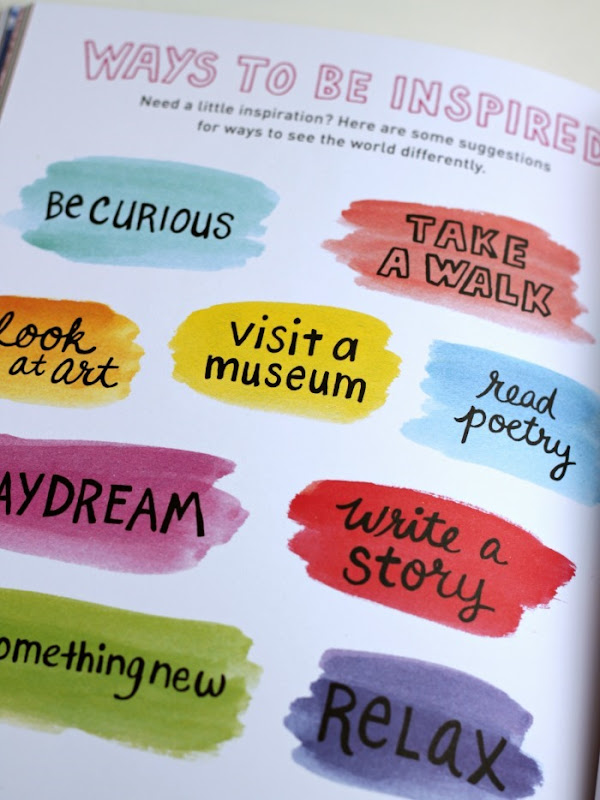 WAYS TO BE INSPIRED
Need a little inspiration? Here are some suggestions
for ways to see the world differently.
Be CURIOUS
TAKE
A WALK
look
at art
visit a
museum
read
poetry
AYDREAM
write a
story
omething new
Relax